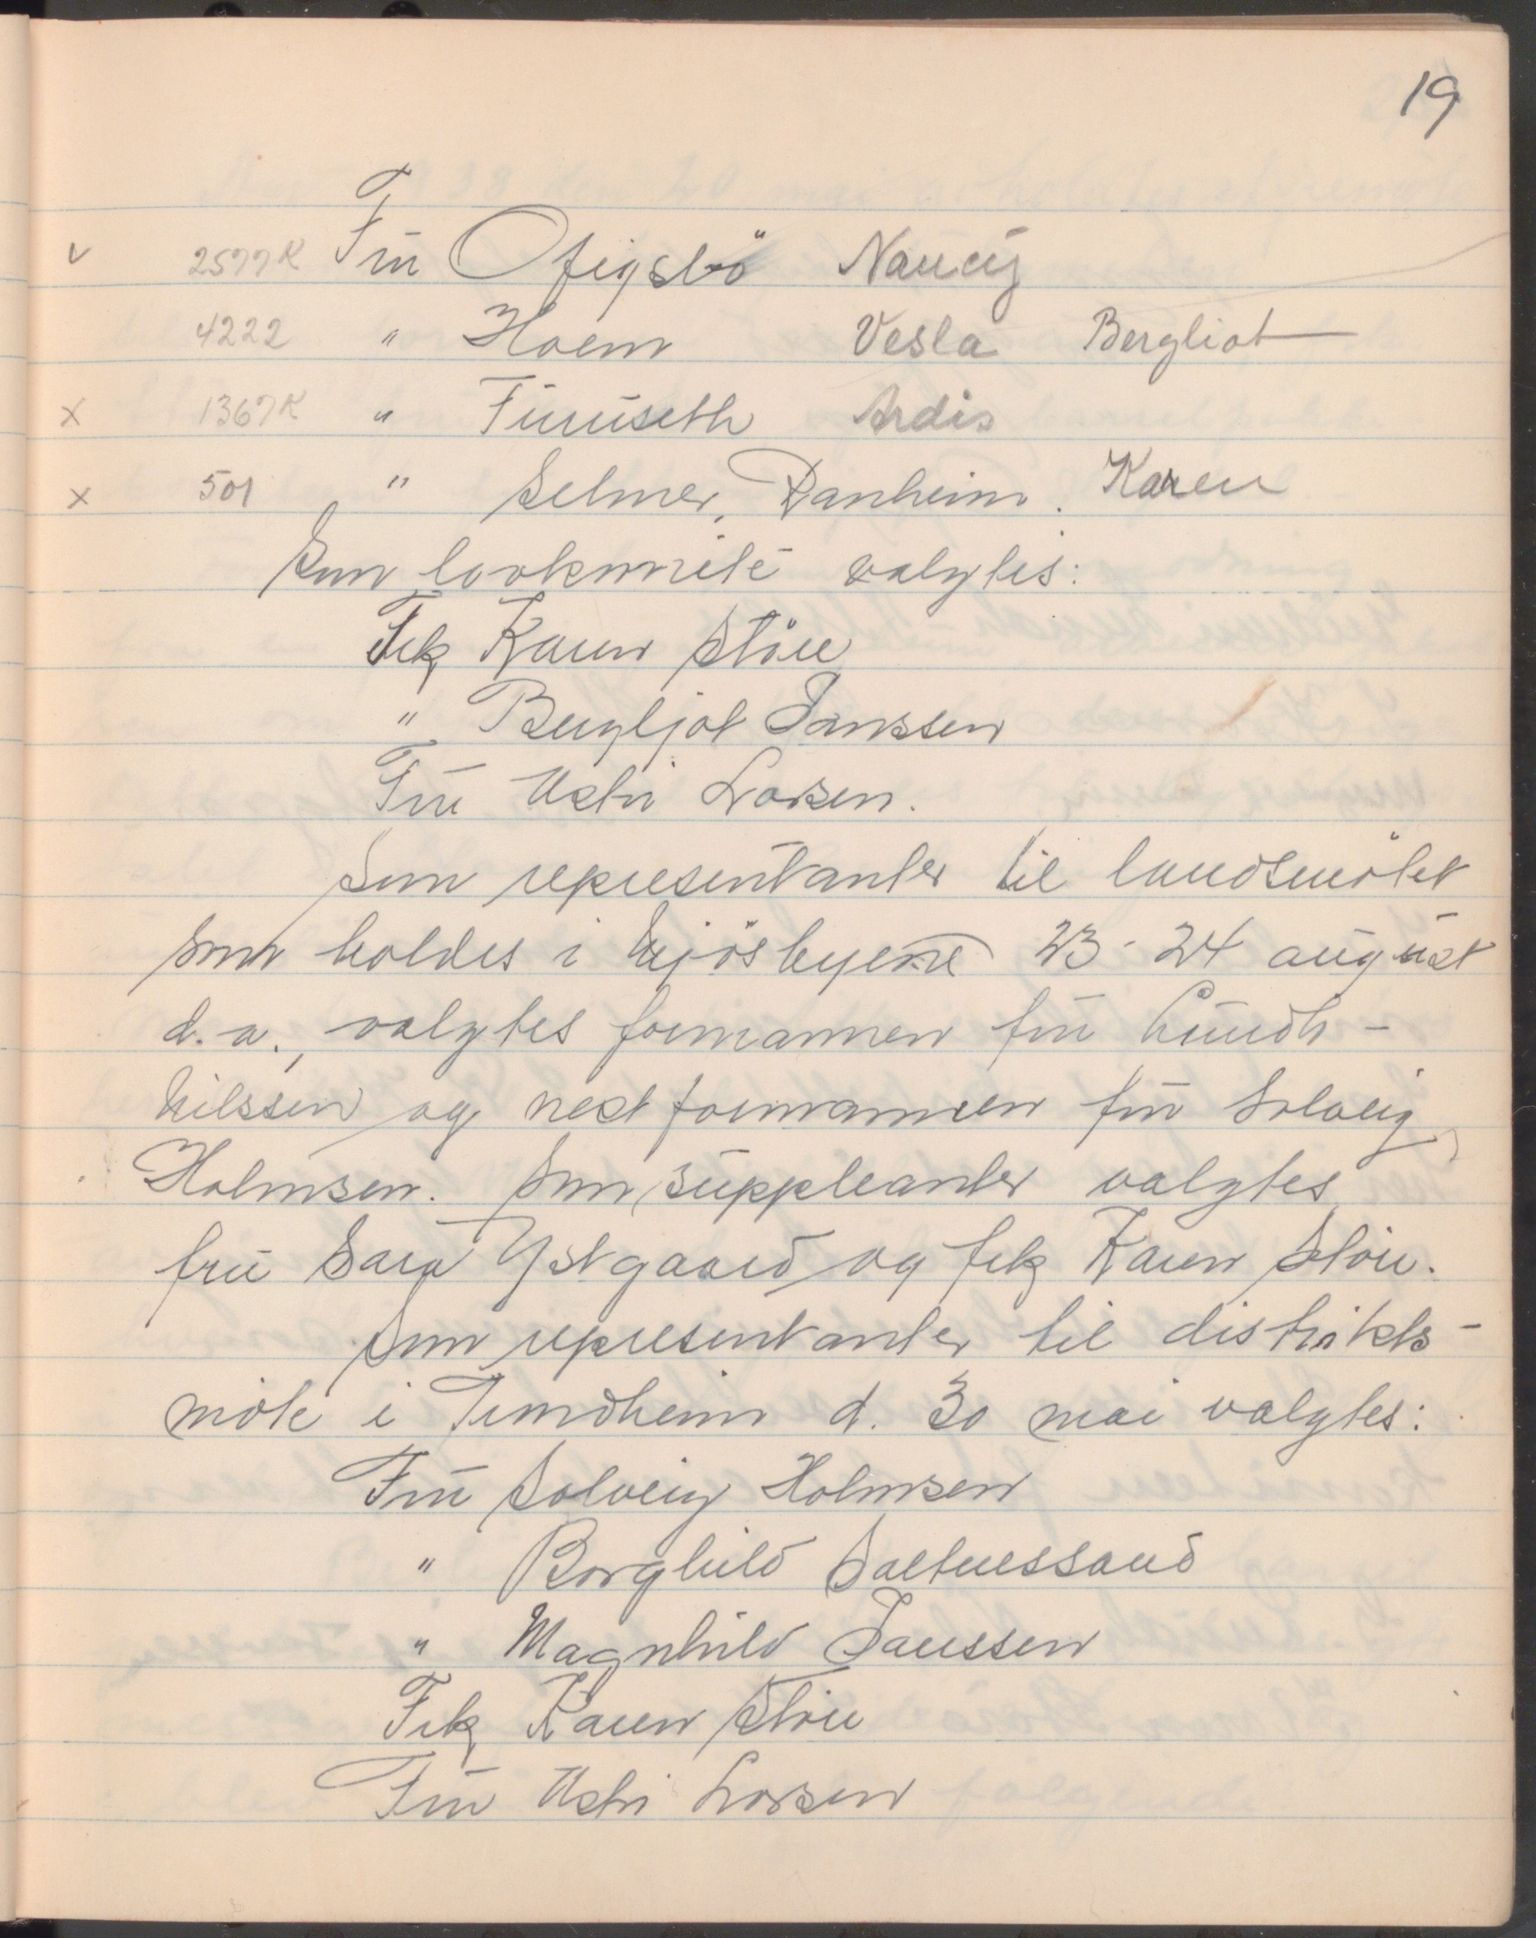 19
v 2577K Fru Ofigsbö Nancy
4222 " Hoem Vesla Bergliot
x 1367K " Furuseth Ardis
x 501 " Selmer, Ranheim. Karen
Som lovkomité valgtes:
Frk Karen Störe
" Bergljot Janssen
Fru Astri Larsen.
Som representanter til landsmötet
som holdes i Mjösbyene 23-24 august
d.a., valgtes formannen fru Lundh-
Nilssen og nestformannen fru Solveig
Holmsen. Som suppleanter valgtes
fru Sara Ystgaard og frk Karen Störe.
Som representanter til distrikts-
möte i Trondheim d. 30 mai valgtes:
Fru Solveig Holmsen
" Borghild Saltnessand
" Magnhild Janssen
Frk Karen Störe
Fru Astri Larsen